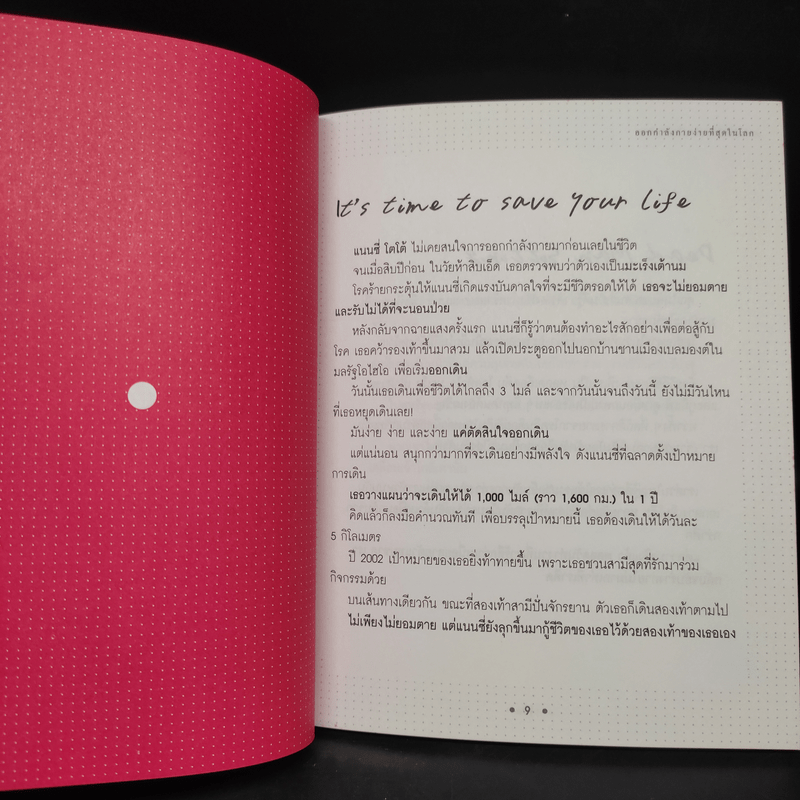 ออกกำลังกายง่ายที่สุดในโลก
It's time to save your life
แนนซี่ โตโต้ ไม่เคยสนใจการออกกำลังกายมาก่อนเลยในชีวิต
จนเมื่อสิบปีก่อน ในวัยห้าสิบเอ็ด เธอตรวจพบว่าตัวเองเป็นมะเร็งเต้านม
โรคร้ายกระตุ้นให้แนนซี่เกิดแรงบันดาลใจที่จะมีชีวิตรอดให้ได้ เธอจะไม่ยอมตาย
และรับไม่ได้ที่จะนอนป่วย
หลังกลับจากฉายแสงครั้งแรก แนนซี่ก็รู้ว่าตนต้องทำอะไรสักอย่างเพื่อต่อสู้กับ
โรค เธอคว้ารองเท้าขึ้นมาสวม แล้วเปิดประตูออกไปนอกบ้านชานเมืองเบลมองต์ใน
มลรัฐโอไฮโอ เพื่อเริ่มออกเดิน
วันนั้นเธอเดินเพื่อชีวิตได้ไกลถึง 3 ไมล์ และจากวันนั้นจนถึงวันนี้ ยังไม่มีวันไหน
ที่เธอหยุดเดินเลย!
มันง่าย ง่าย และง่าย แค่ตัดสินใจออกเดิน
แต่แน่นอน สนุกกว่ามากที่จะเดินอย่างมีพลังใจ ดังแนนซี่ที่ฉลาดตั้งเป้าหมาย
การเดิน
เธอวางแผนว่าจะเดินให้ได้ 1,000 ไมล์ (ราว 1,600 กม.) ใน 1 ปี
คิดแล้วก็ลงมือคำนวณทันที เพื่อบรรลุเป้าหมายนี้ เธอต้องเดินให้ได้วันละ
5 กิโลเมตร
ปี 2002 เป้าหมายของเธอยิ่งท้าทายขึ้น เพราะเธอชวนสามีสุดที่รักมาร่วม
กิจกรรมด้วย
บนเส้นทางเดียวกัน ขณะที่สองเท้าสามีปั่นจักรยาน ตัวเธอก็เดินสองเท้าตามไป
ไม่เพียงไม่ยอมตาย แต่แนนซี่ยังลุกขึ้นมากู้ชีวิตของเธอไว้ด้วยสองเท้าของเธอเอง
• 9 •